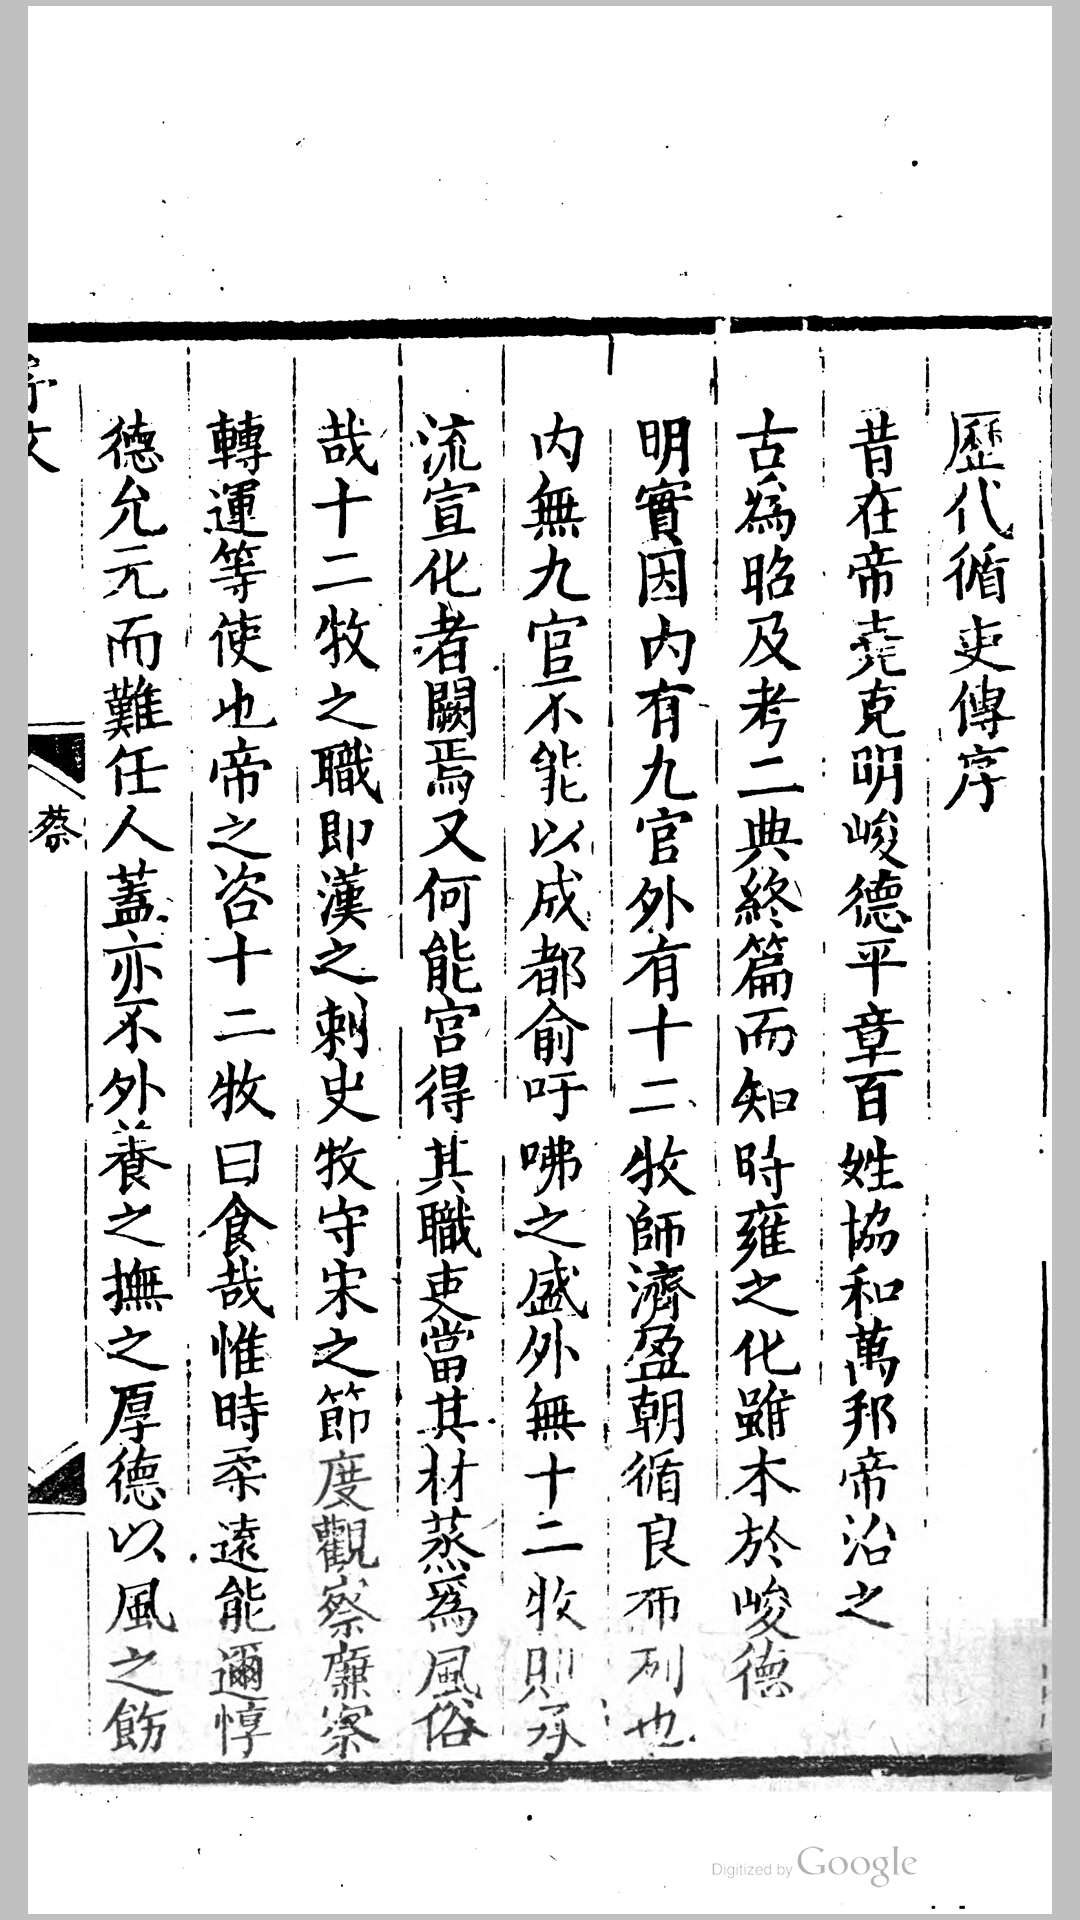 歷代循吏傳序
昔在帝堯克明峻德平章百姓協和萬邦帝治之
古為昭及考二典終篇而知時雍之化雖本於峻德
明實因內有九官外有十二牧師濟盈朝循良布列也
內無九官不能以成都俞吁咈之盛外無十二牧則承
流宣化者闕焉又何能官得其職吏當其材蒸為風俗
哉十二牧之職即漢之刺史牧守宋之節度觀察廉察
轉運等使也帝之咨十二牧曰食哉惟時柔遠能邇惇
德允元而難任人蓋亦不外養之撫之厚德以風之飭
序文
蔡
Digitized by Google